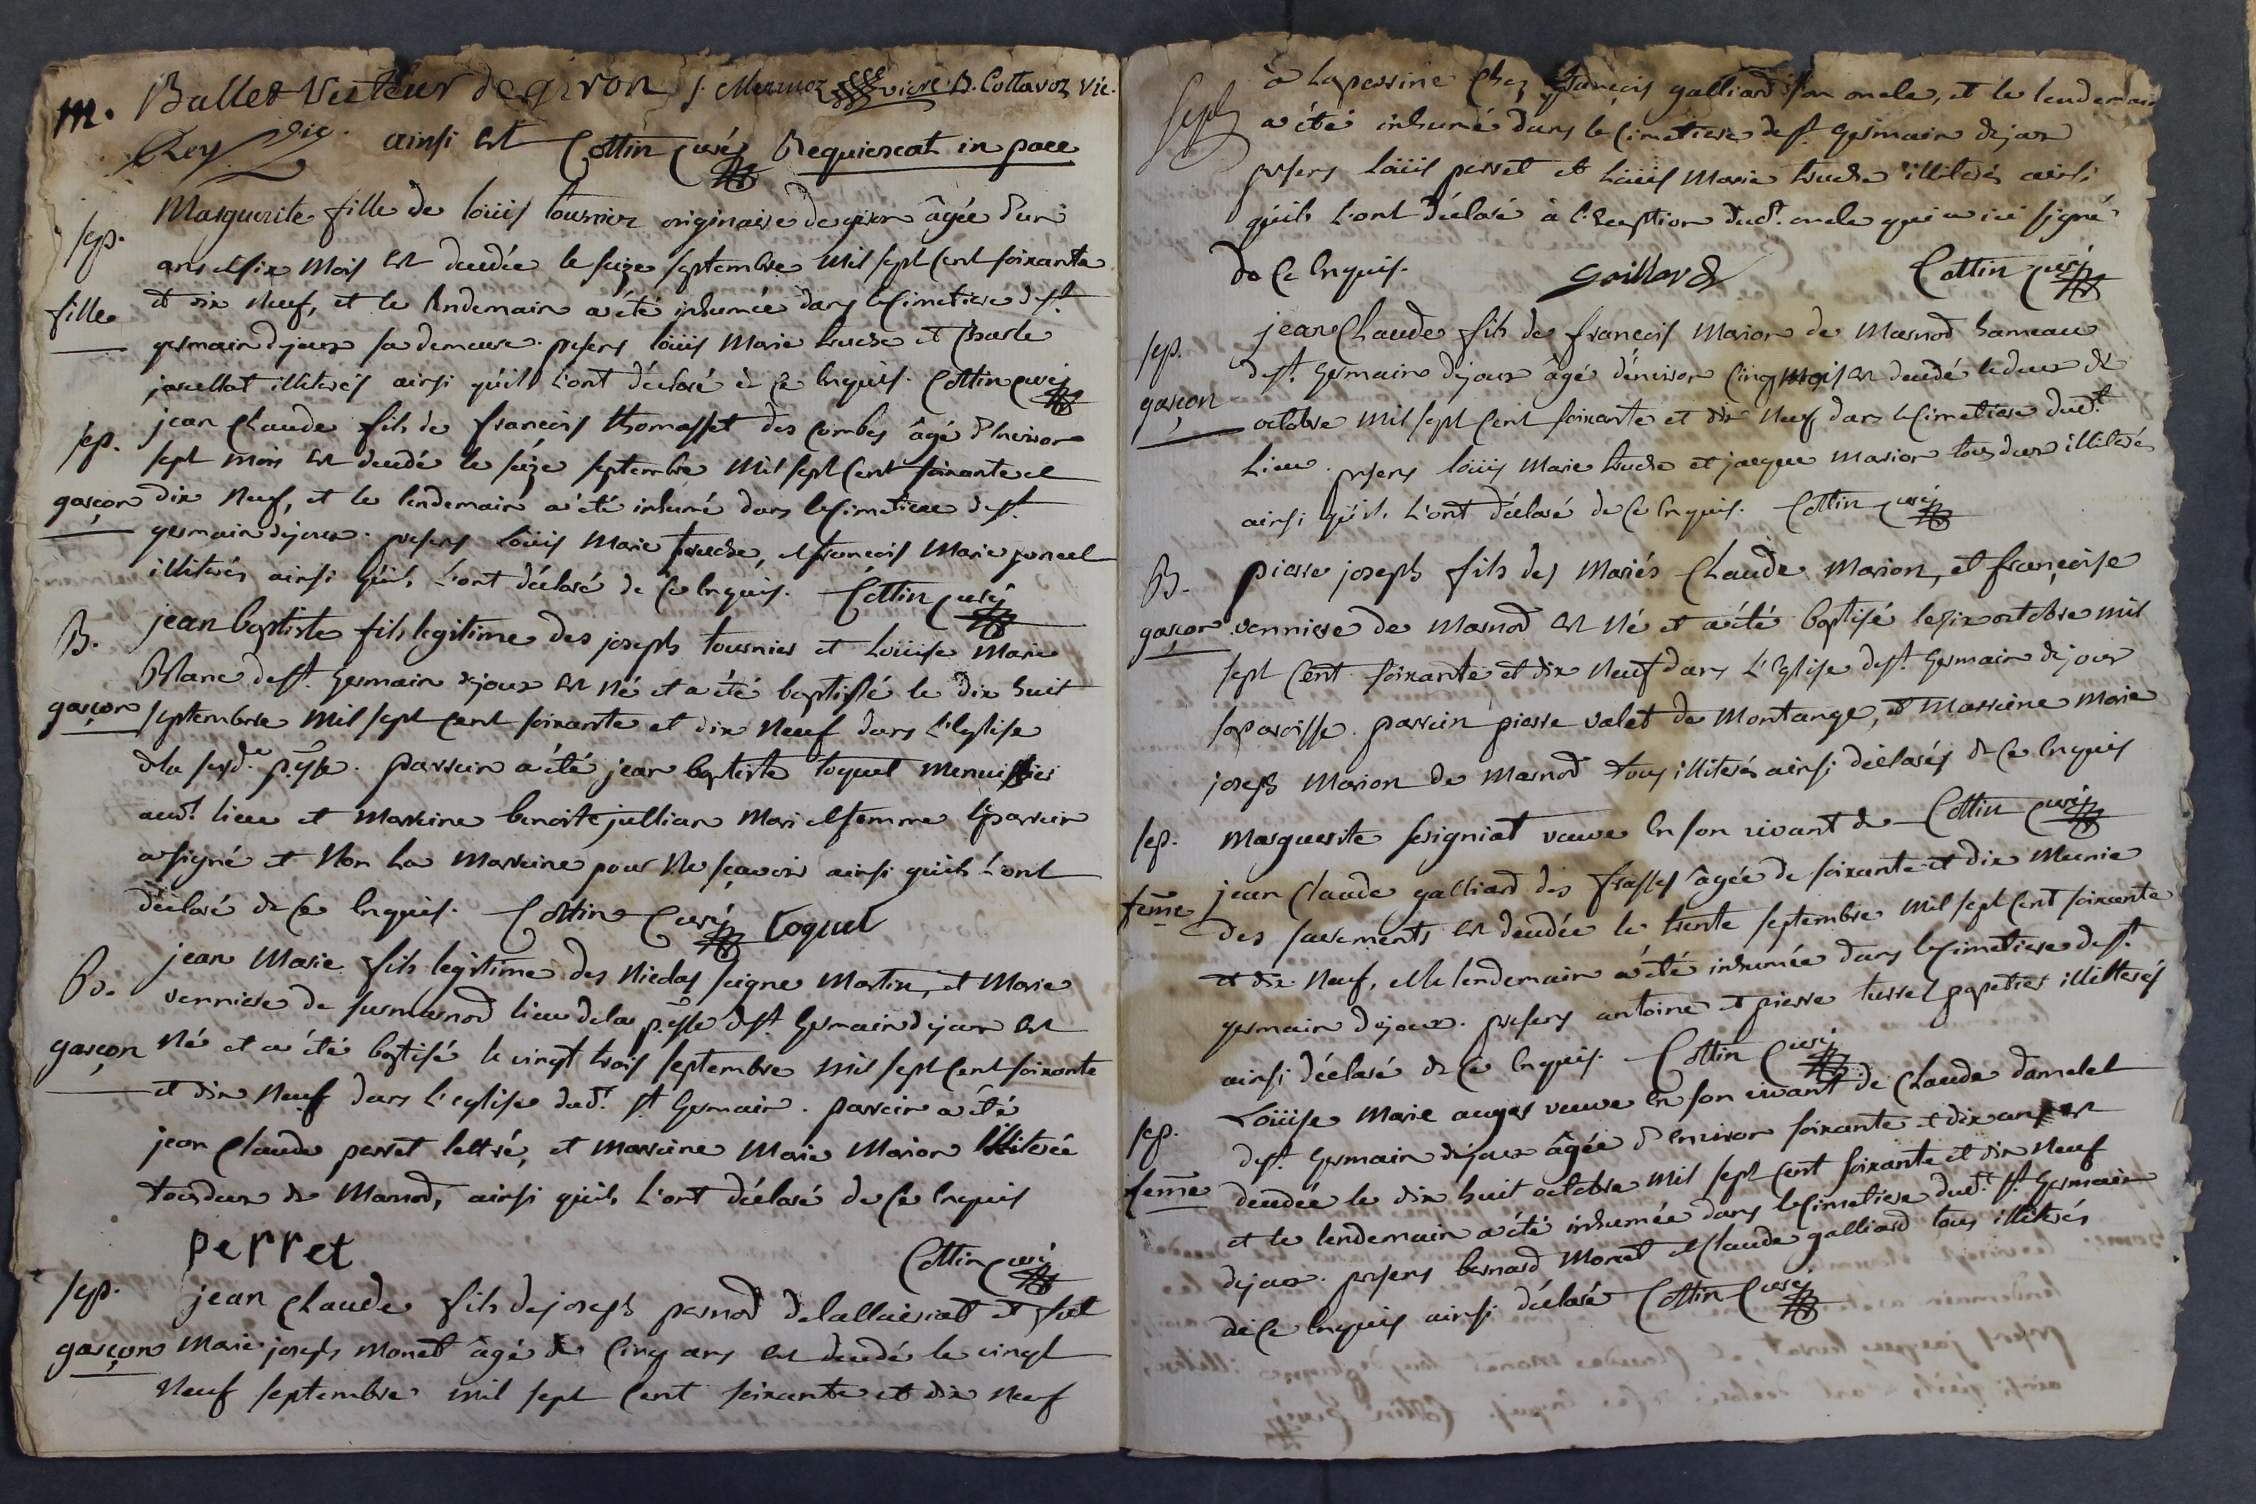 M. Ballet Victeur de giron J. Mermoz vicre. B. Cottavoz vic.
Rey Vic. ainsi est Cottin Curé Requiescat in pace
Marguerite fille de loüis tournier originaire de giron âgée d'un
sep.
ans et six mois est decedée le seize septembre mil sept cent soixante
fille
et dix neuf, et le lendemain a été inhumée dans le cimetiere de st.
germain de joux sa demeure. presens loüis Marie truche et Charle
jacellat illiterés ainsi qu'ils l'ont déclaré de ce enquis. Cottin curé
sep.
jean Claude fils de françois thomasset des Combes âgé d'environ
sept mois est decedé le seize septembre mil sept cent soixante et
garçon
dix neuf, et le lendemain a été inhumé dans le cimetiere de st.
germain de joux. presens Loüis Marie truche, et francois Marie poncet
illiterés ainsi qu'ils l'ont déclaré de ce enquis. Cottin curé
B.
jean baptiste fils legitime des joseph tournier et Loüise Marie
Blanc de st. germain de joux est né et a été baptisé le dix huit
garçon
septembre mil sept cent soixante et dix neuf dans l'eglise
de la susd.e p.sse. parrain a été jean baptiste toquet menuisier
aud.t lieu et marraine benoite jullian mari et femme le parrain
a signé et non la marraine pour ne sçavoir ainsi qu'ils l'ont
déclaré de ce enquis. Cottin Curé toquet
B.
jean Marie fils legitime des Nicolas seigne Martin, et Marie
verniere de surmarnod lieu de la p.sse de st. Germain de joux est
garçon
né et a été baptisé le vingt trois septembre mil sept cent soixante
et dix neuf dans l'eglise dud.t st Germain. parrain a été
jean Claude perret lettré, et marraine Marie Marion illiterée
tous deux de Marnod, ainsi qu'ils l'ont déclaré de ce enquis
perret
Cottin curé
sep.
jean Claude fils de joseph pernod de lallairiat et fut
garçon
Marie joseph Monet âgé de cinq ans est decedé le vingt
neuf septembre mil sept cent soixante et dix neuf
sept
a Laperrine chez françois galliard son oncle, et le lendemain
a été inhumé dans le cimetiere de st. germain de joux
presens Loüis perret et Loüis Marie truche illiterés ainsi
qu'ils l'ont déclaré à l'exeption dud.t oncle qui a ici signé
de ce enquis. gaillard Cottin curé
sep.
jean Claude fils de françois Marion de Marnod hameau
de st. germain de joux âgé d'environ cinq mois est decedé le deux de
garçon
octobre mil sept cent soixante et dix neuf dans le cimetiere dud.t
Lieu. presens loüis Marie truche et jacque Marion tous deux illiterés
ainsi qu'ils l'ont déclaré de ce enquis. Cottin curé
B.
pierre joseph fils des mariés Claude Marion, et françoise
garçon
verniere de Marnod est né et a été baptisé le six octobre mil
sept cent soixante et dix neuf dans l'eglise de st. Germain de joux
sa paroisse. parrain pierre valet de Montange, et marraine marie
joseph Marion de Marnod tous illiterés ainsi déclarés de ce enquis
sep.
Marguerite seigniat veuve en son vivant de Cottin curé
feme
jean Claude galliard des frasses âgée de soixante et dix munie
des sacrements est decedée le trente septembre mil sept cent soixante
et dix neuf, et le lendemain a été inhumée dans le cimetiere de st.
germain de joux. presens antoine et pierre turrel papetier illiterés
ainsi déclaré de ce enquis. Cottin curé
sep.
Loüise Marie auger veuve en son vivant de Claude damelet
de st. Germain de joux âgée d'environ soixante et dix ans est
feme
decedée le dix huit octobre mil sept cent soixante et dix neuf
et le lendemain a été inhumée dans le cimetiere dud.t st. Germain
de joux. presens bernard Monet et Claude galliard tous illiterés
de ce enquis ainsi déclaré Cottin Curé